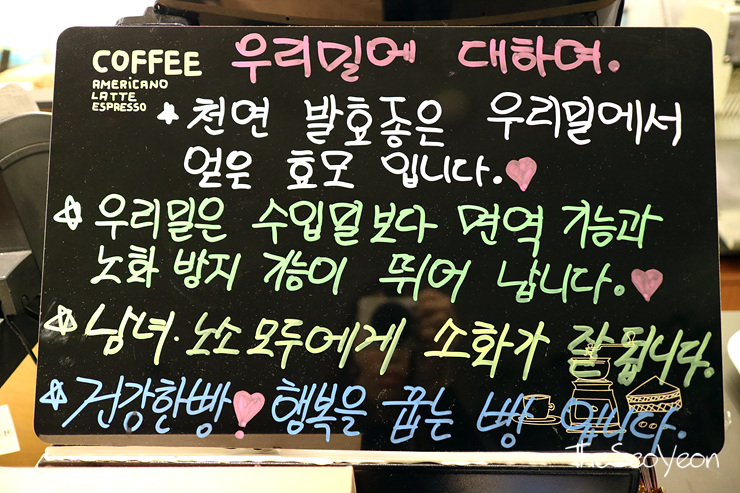 COFFEE
AMERICANO
LATTE
ESPRESSO
우리밀에 대하여.
천연 발효종은 우리밀에서
얻은 효모 입니다.
우리밀은 수입밀보다 면역 기능과
노화 방지 기능이 뛰어 납니다.
남녀·노소 모두에게 소화가 잘 됩니다.
건강한빵 행복을 굽는 빵 입니다.
TheSeoYeon